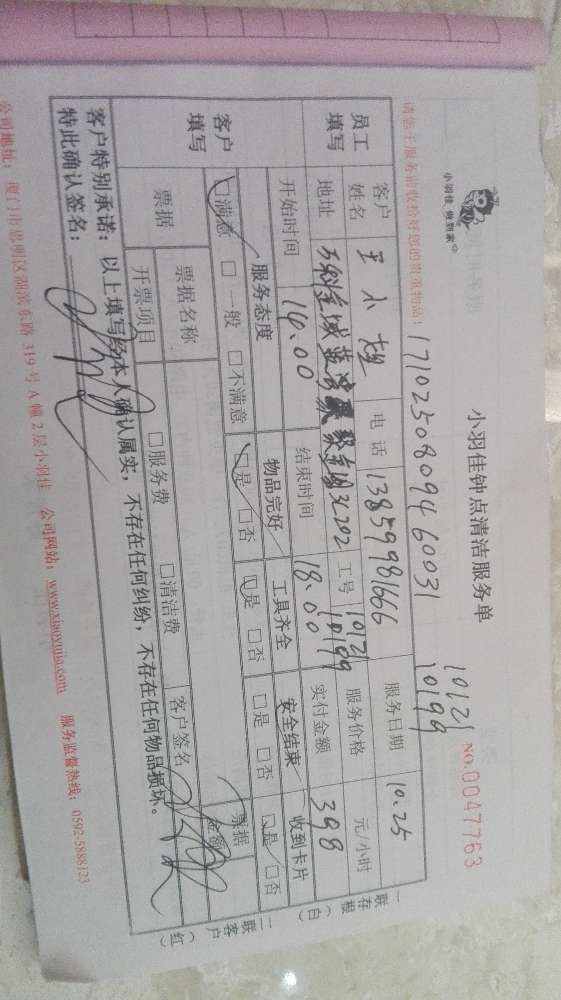 小羽佳 做到家
小羽佳钟点清洁服务单
10121
10199
NO.0047763
请您于服务前收拾好您的贵重物品!
17102508094 60031
员工填写
客户姓名 电话 13859981666 服务日期 10.25
地址 万科金域 工号 10121 10199 服务价格 元/小时
开始时间 14.00 结束时间 18.00 实付金额 398
客户填写
服务态度 物品完好 工具齐全 安全结束 收到卡片
□满意 □一般 □不满意 □是 □否 □是 □否 □是 □否 □是 □否
票据 票据名称 □服务费 □清洁费 客户签名 票据金额
开票项目
客户特别承诺:以上填写经本人确认属实,不存在任何纠纷,不存在任何物品损坏。
特此确认签名:
一联存根(白)
二联客户(红)
公司地址:厦门市思明区湖滨东路 319 号 A 幢 2 层小羽佳 公司网站:www.xiaoyujia.com 服务监督热线:0592-5888123